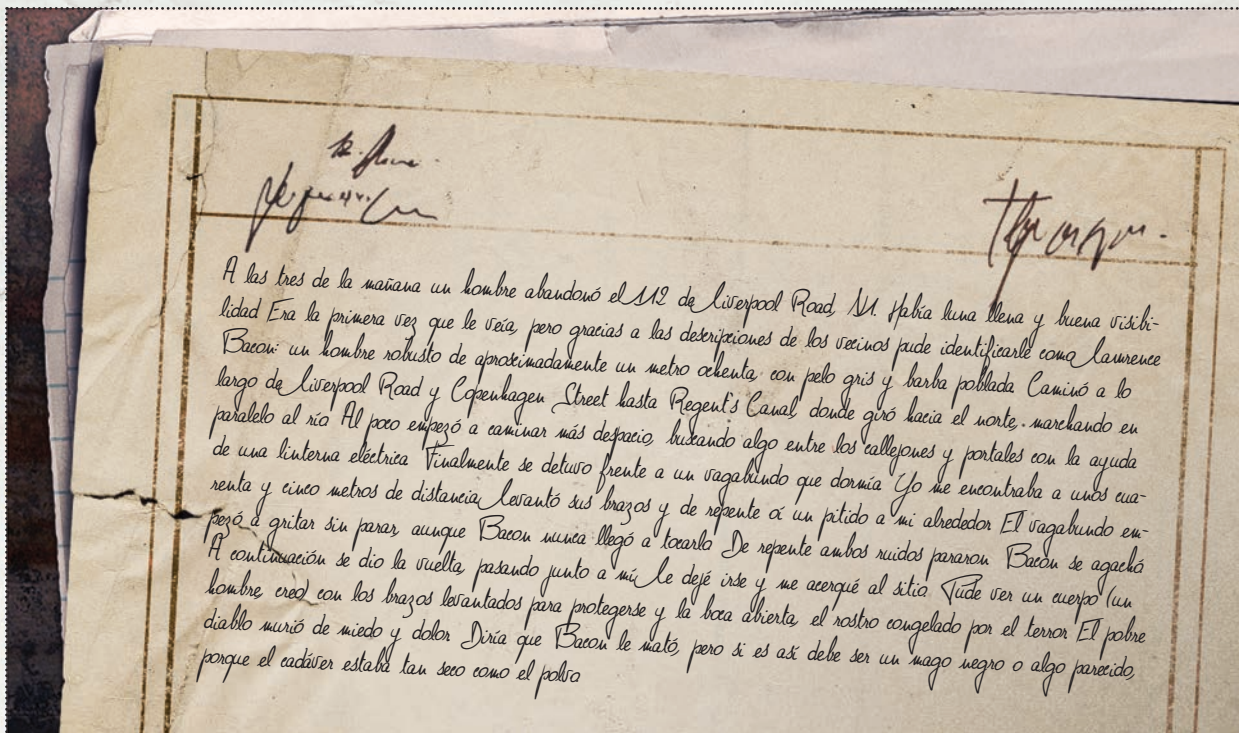 A las tres de la mañana un hombre abandonó el 112 de Liverpool Road, N1. Había luna llena y buena visibi-
lidad Era la primera vez que le veía, pero gracias a las descripciones de los vecinos pude identificarle como Lawrence
Bacon: un hombre robusto de aproximadamente un metro ochenta, con pelo gris y barba poblada Caminó a lo
largo de Liverpool Road y Copenhagen Street hasta Regent's Canal, donde giró hacia el norte, marchando en
paralelo al río Al poco empezó a caminar más despacio, buscando algo entre los callejones y portales con la ayuda
de una linterna eléctrica Finalmente se detuvo frente a un vagabundo que dormía Yo me encontraba a unos cua-
renta y cinco metros de distancia, levantó sus brazos y de repente oí un pitido a mi alrededor El vagabundo em-
pezó a gritar sin parar, aunque Bacon nunca llegó a tocarlo De repente ambos ruidos pararon Bacon se agachó
A continuación se dio la vuelta, pasando junto a mí, le dejé irse y me acerqué al sitio Pude ver un cuerpo (un
hombre, creo) con los brazos levantados para protegerse y la boca abierta, el rostro congelado por el terror El pobre
diablo murió de miedo y dolor Diría que Bacon le mató, pero si es así debe ser un mago negro o algo parecido,
porque el cadáver estaba tan seco como el polvo